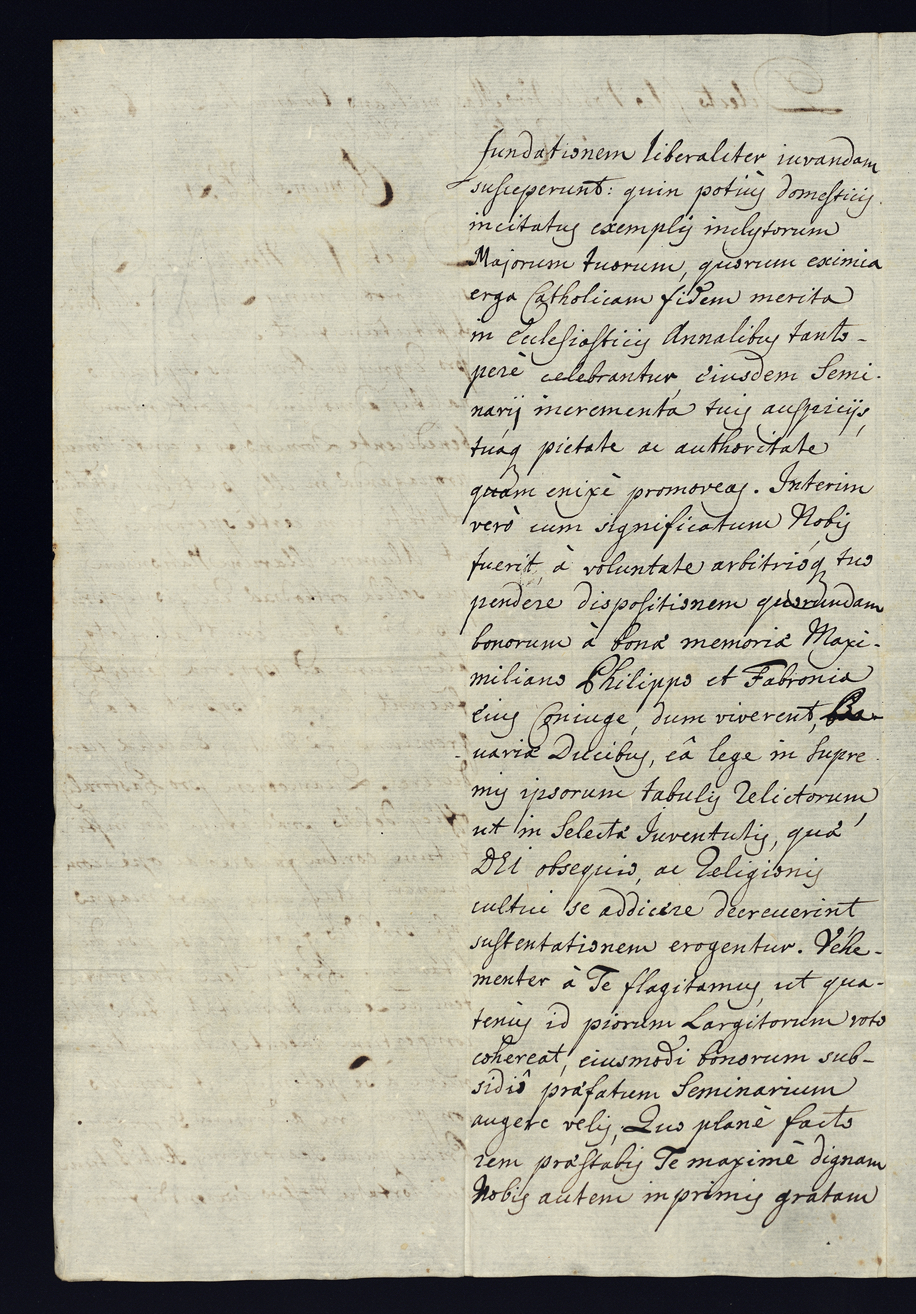 fundationem liberaliter iuvandam
susceperunt: quin potius domesticis
incitatus exemplis inclytorum
Majorum tuorum, quorum eximia
erga Catholicam fidem merita
in Ecclesiasticis Annalibus tanto-
perè celebrantur, eiusdem Semi-
narij incrementa tuis auspicijs,
tuaq pietate ac authoritate
quàm enixè promoveas. Interim
verò cum significatum Nobis
fuerit, à voluntate arbitrioq tuo
pendere dispositionem quorundam
bonorum à bonæ memoriæ Maxi-
miliano Philippo et Fabronia
eius Coniuge, dum viverent, Ba-
variæ Ducibus, eâ lege in supre-
mis ipsorum tabulis relictorum,
ut in selectæ Iuventutis, quæ
DEI obsequio, ac Religionis
cultui se addicere decreuerint
sustentationem erogentur. Vehe-
menter à Te flagitamus, ut qua-
tenus id piorum Largitorum voto
cohereat, eiusmodi bonorum sub-
sidiô præfatum Seminarium
augere velis. Quo planè facto
rem præstabis Te maximè dignam
Nobis autem in primis gratam